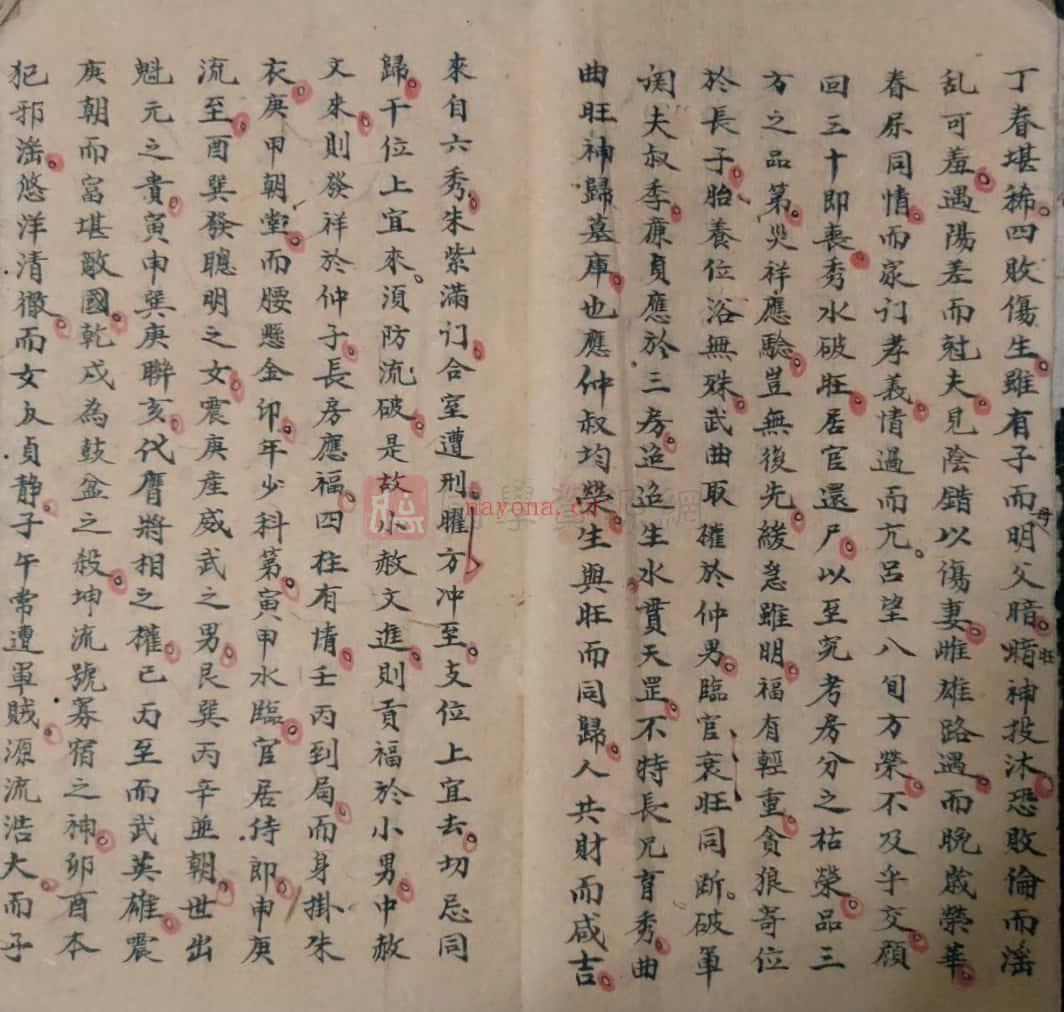 丁春堪稀四敗傷生雖有子而明父暗暗神投沐恐敗倫而滛
母
壯
乱可羞遇陽差而尅夫見陰錯以傷妻雌雄路遇而晚歲榮華
春尿同情而家订孝義情過而亢呂望八旬方榮不及乎交顔
回三十即喪秀水破旺居官還尸以至究考房分之枯榮品三
方之品第災祥應驗豈無後先緩急雖明福有輕重貪狼寄位
於長子胎養位浴無殊武曲取權於仲男臨官衰旺同斷破軍
闺夫叔季廉貞應於三房迢迢生水貫天罡不特長兄育秀曲
曲旺神歸墓庫也應仲叔均榮生與旺而同歸人共財而咸吉
來自六秀朱紫滿订合室遭刑曜方冲至支位上宜去切忌同
歸干位上宜來須防流破是故小赦文進則貢福於小男中赦
文來則發祥於仲子長房應福四柱有情壬丙到局而身掛朱
衣庚甲朝堂而腰懸金印年少科第寅甲水臨官居侍郎申庚
流至酉巽發聰明之女震庚産威武之男艮巽丙辛並朝世出
魁元之貴寅申巽庚聯亥代膺將相之權已丙至而武英雄震
庚朝而富堪敵國乾戍為鼓盆之殺坤流號寡宿之神卯酉本
犯邪滛悠洋清徹而女反貞静子午常遭軍賊源流浩大而子
nayona.cn
學資源網